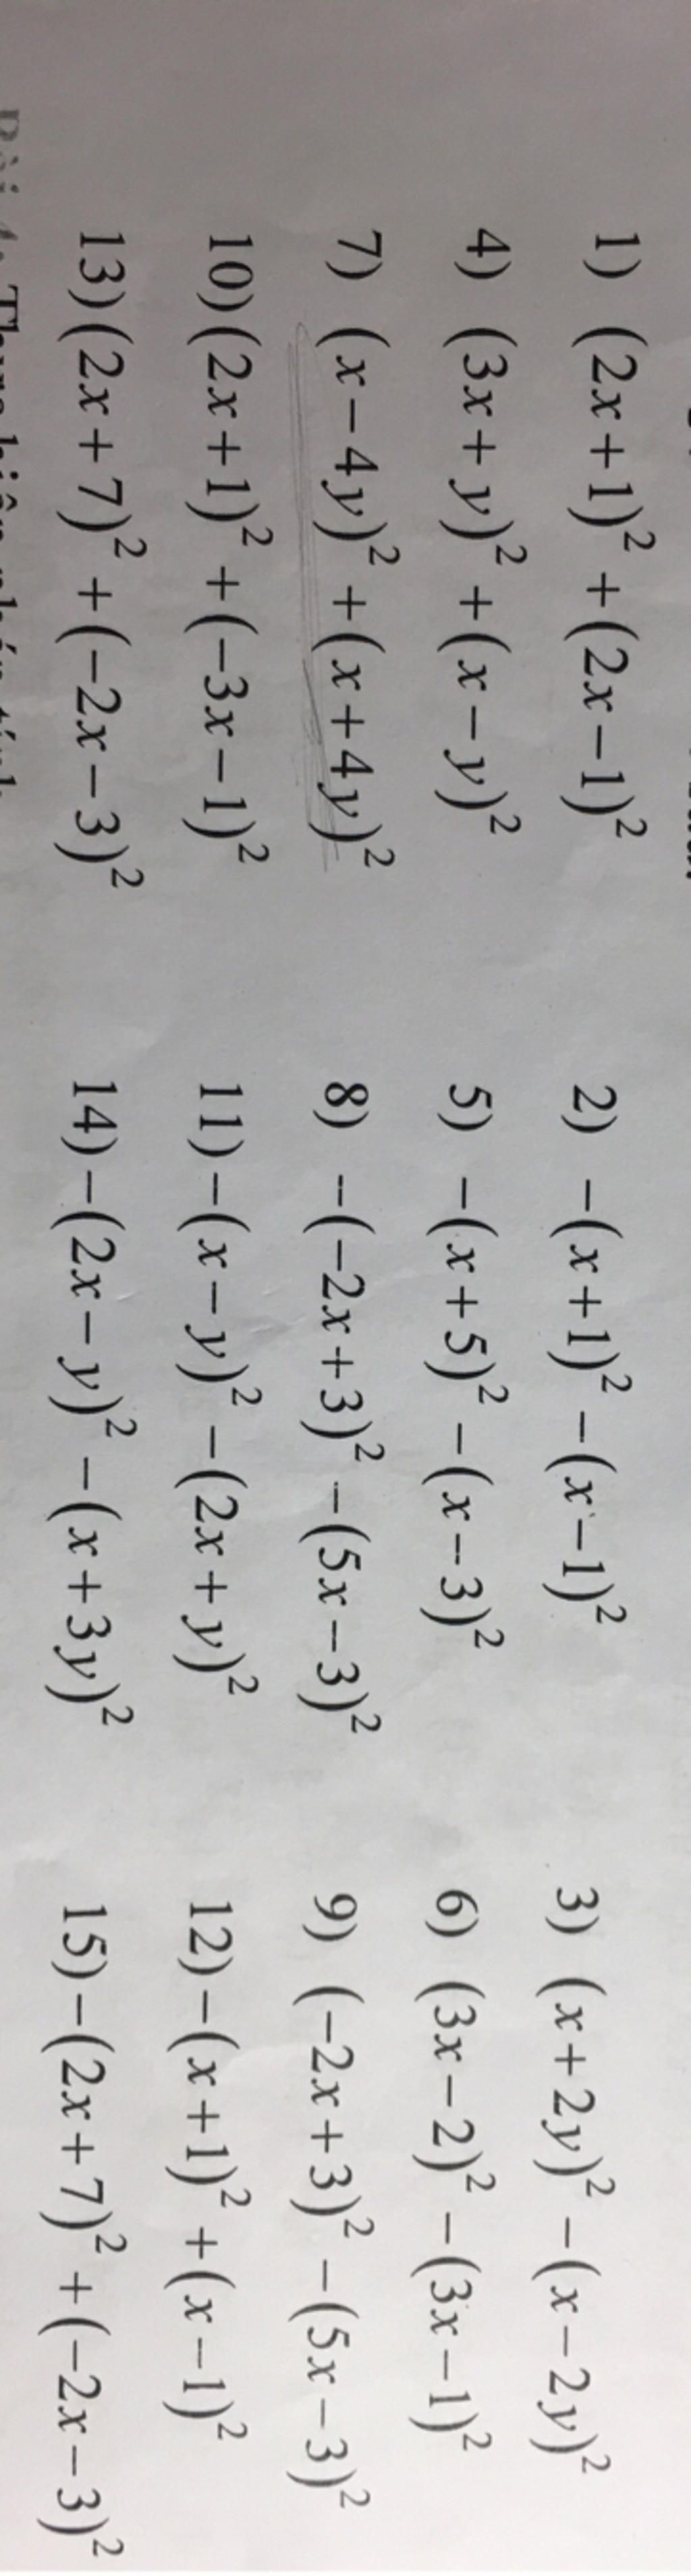 1) (2x+1)² + (2x−1)² 2) −(x+1)² − (x−1)² 3) (x+2y)² − (x−2y)²
4) (3x+y)² + (x−y)² 5) −(x+5)² − (x−3)² 6) (3x−2)² − (3x−1)²
7) (x−4y)² + (x+4y)² 8) −(−2x+3)² − (5x−3)² 9) (−2x+3)² − (5x−3)²
10) (2x+1)² + (−3x−1)² 11) −(x−y)² − (2x+y)² 12) −(x+1)² + (x−1)²
13) (2x+7)² + (−2x−3)² 14) −(2x−y)² − (x+3y)² 15) −(2x+7)² + (−2x−3)²